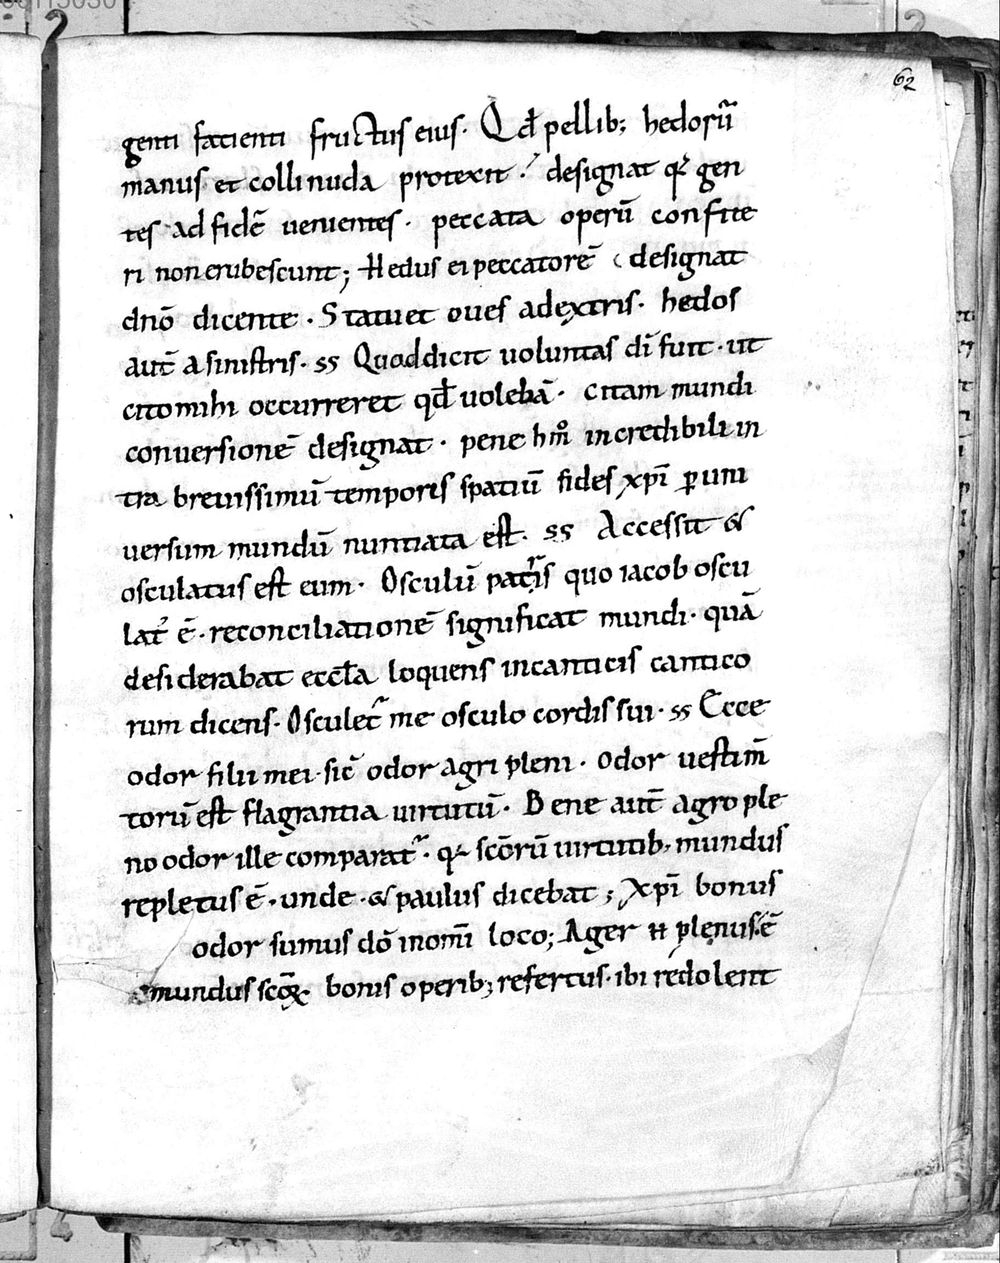 62
genti facienti fructus eius. Qđ pellib; hedorū
manus et colli nuda protexit. designat qđ gen
tes ad fidē uenientes. peccata operū confite
ri non erubescunt; Hedus ei peccatorē designat
dn̄o dicente. Statuet oues adextris. hedos
aut̄ a sinistris. ss Quod dicit uoluntas dī fuit. ut
cito mihi occurreret qđ uolebā. citam mundi
conuersionē designat. pene hm̊ incredibili in
tra breuissimū temporis spatiū fides xp̄i ꝑ uni
uersum mundū nuntiata est. ss Accessit &
osculatus est eum. Osculū patris quo iacob oscu
lat᷑ ē. reconciliationē significat mundi. quā
desiderabat eccl̄a loquens incanticis cantico
rum dicens. Osculet᷑ me osculo cordis sui. ss Ecce
odor filii mei. sic̄ odor agri pleni. Odor uestim̄
torū est flagrantia uirtutū. Bene aut̄ agro ple
no odor ille comparat᷑. q scōrū uirtutib; mundus
repletus ē. unde & paulus dicebat; xp̄i bonus
odor sumus dō inom̄i loco; Ager plenus ē
mundus scōꝝ bonis operib; refertus. ibi redolent